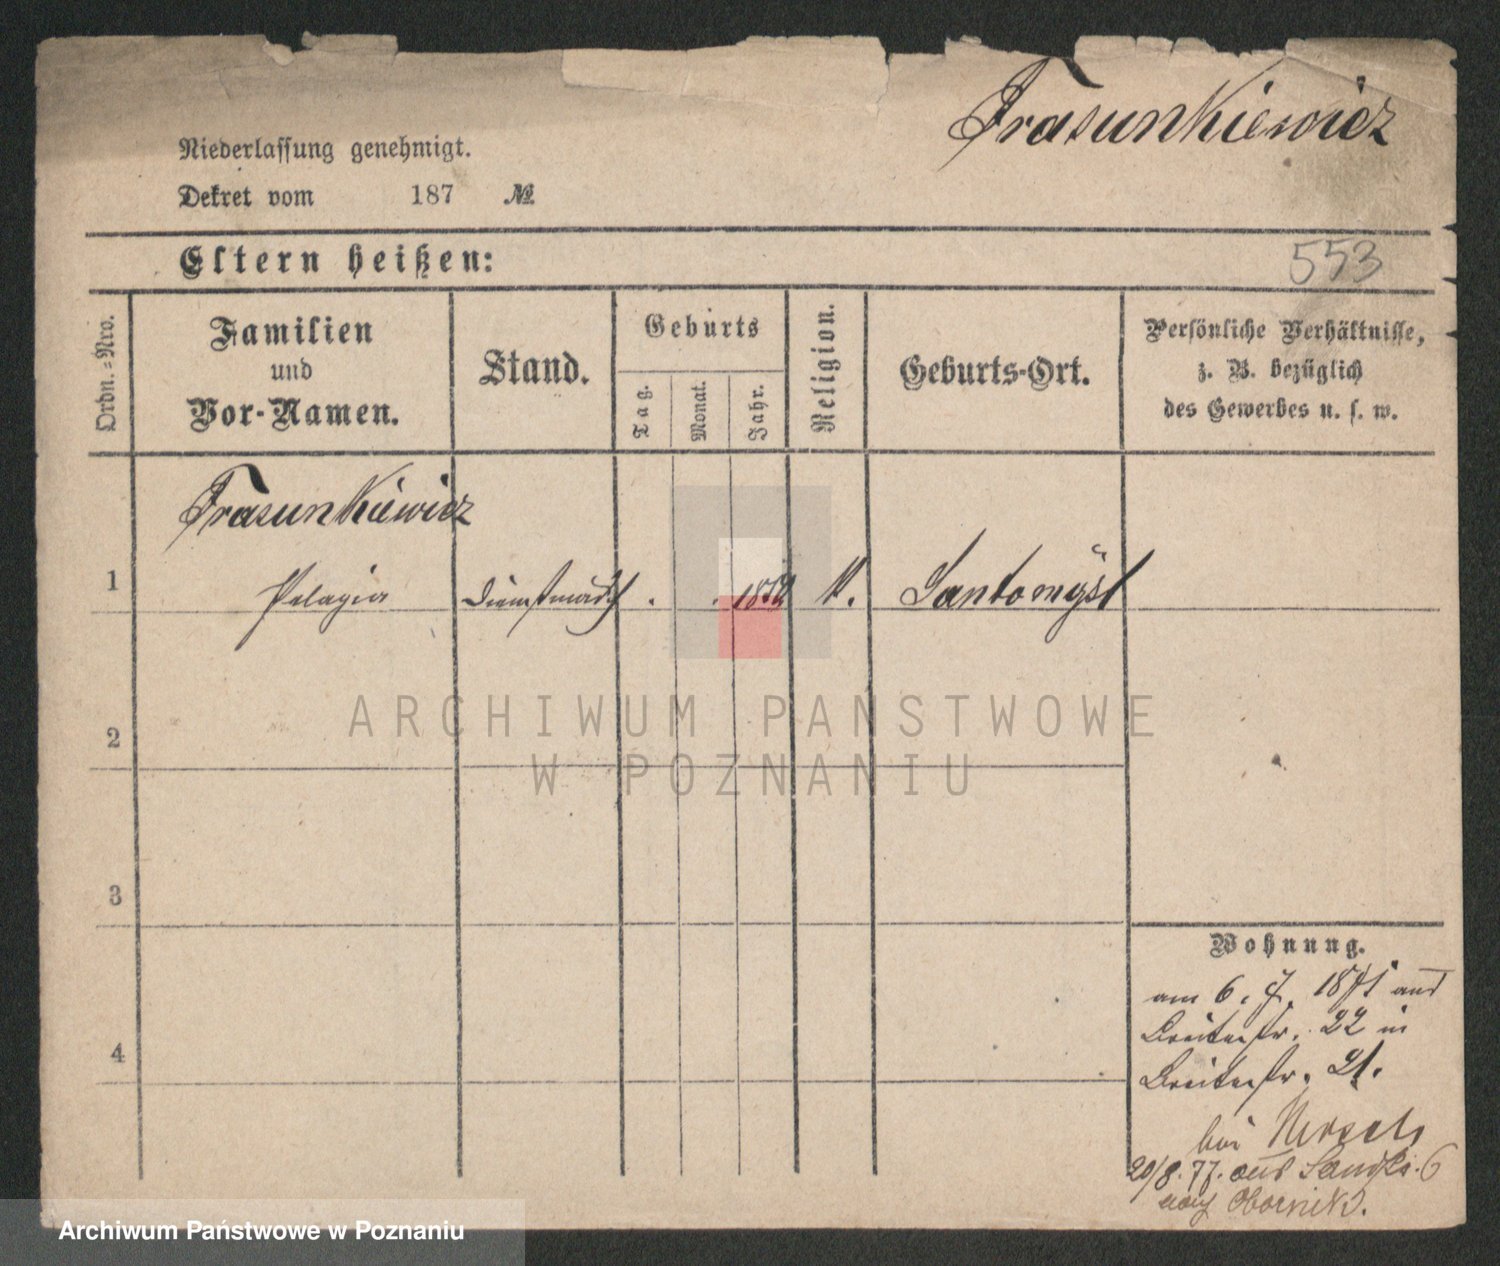 Trasunkiewicz
Niederlassung genehmigt.
Dekret vom 187 №
Eltern heißen:
553
Ordn.=Nro.
Familien
und
Vor-Namen.
Stand.
Geburts
Tag.
Monat.
Jahr.
Religion.
Geburts-Ort.
Persönliche Verhältnisse,
z. B. bezüglich
des Gewerbes u. s. w.
Trasunkiewicz
1 Pelagia Dienstmäd K. Santomyšl
2
3
4
Wohnung.
am 6. 7. aus
Breitestr. 22 in
Breitestr. 21.
bei
20/8.77. aus 6
nach Obornik
ARCHIWUM PAŃSTWOWE
W POZNANIU
Archiwum Państwowe w Poznaniu